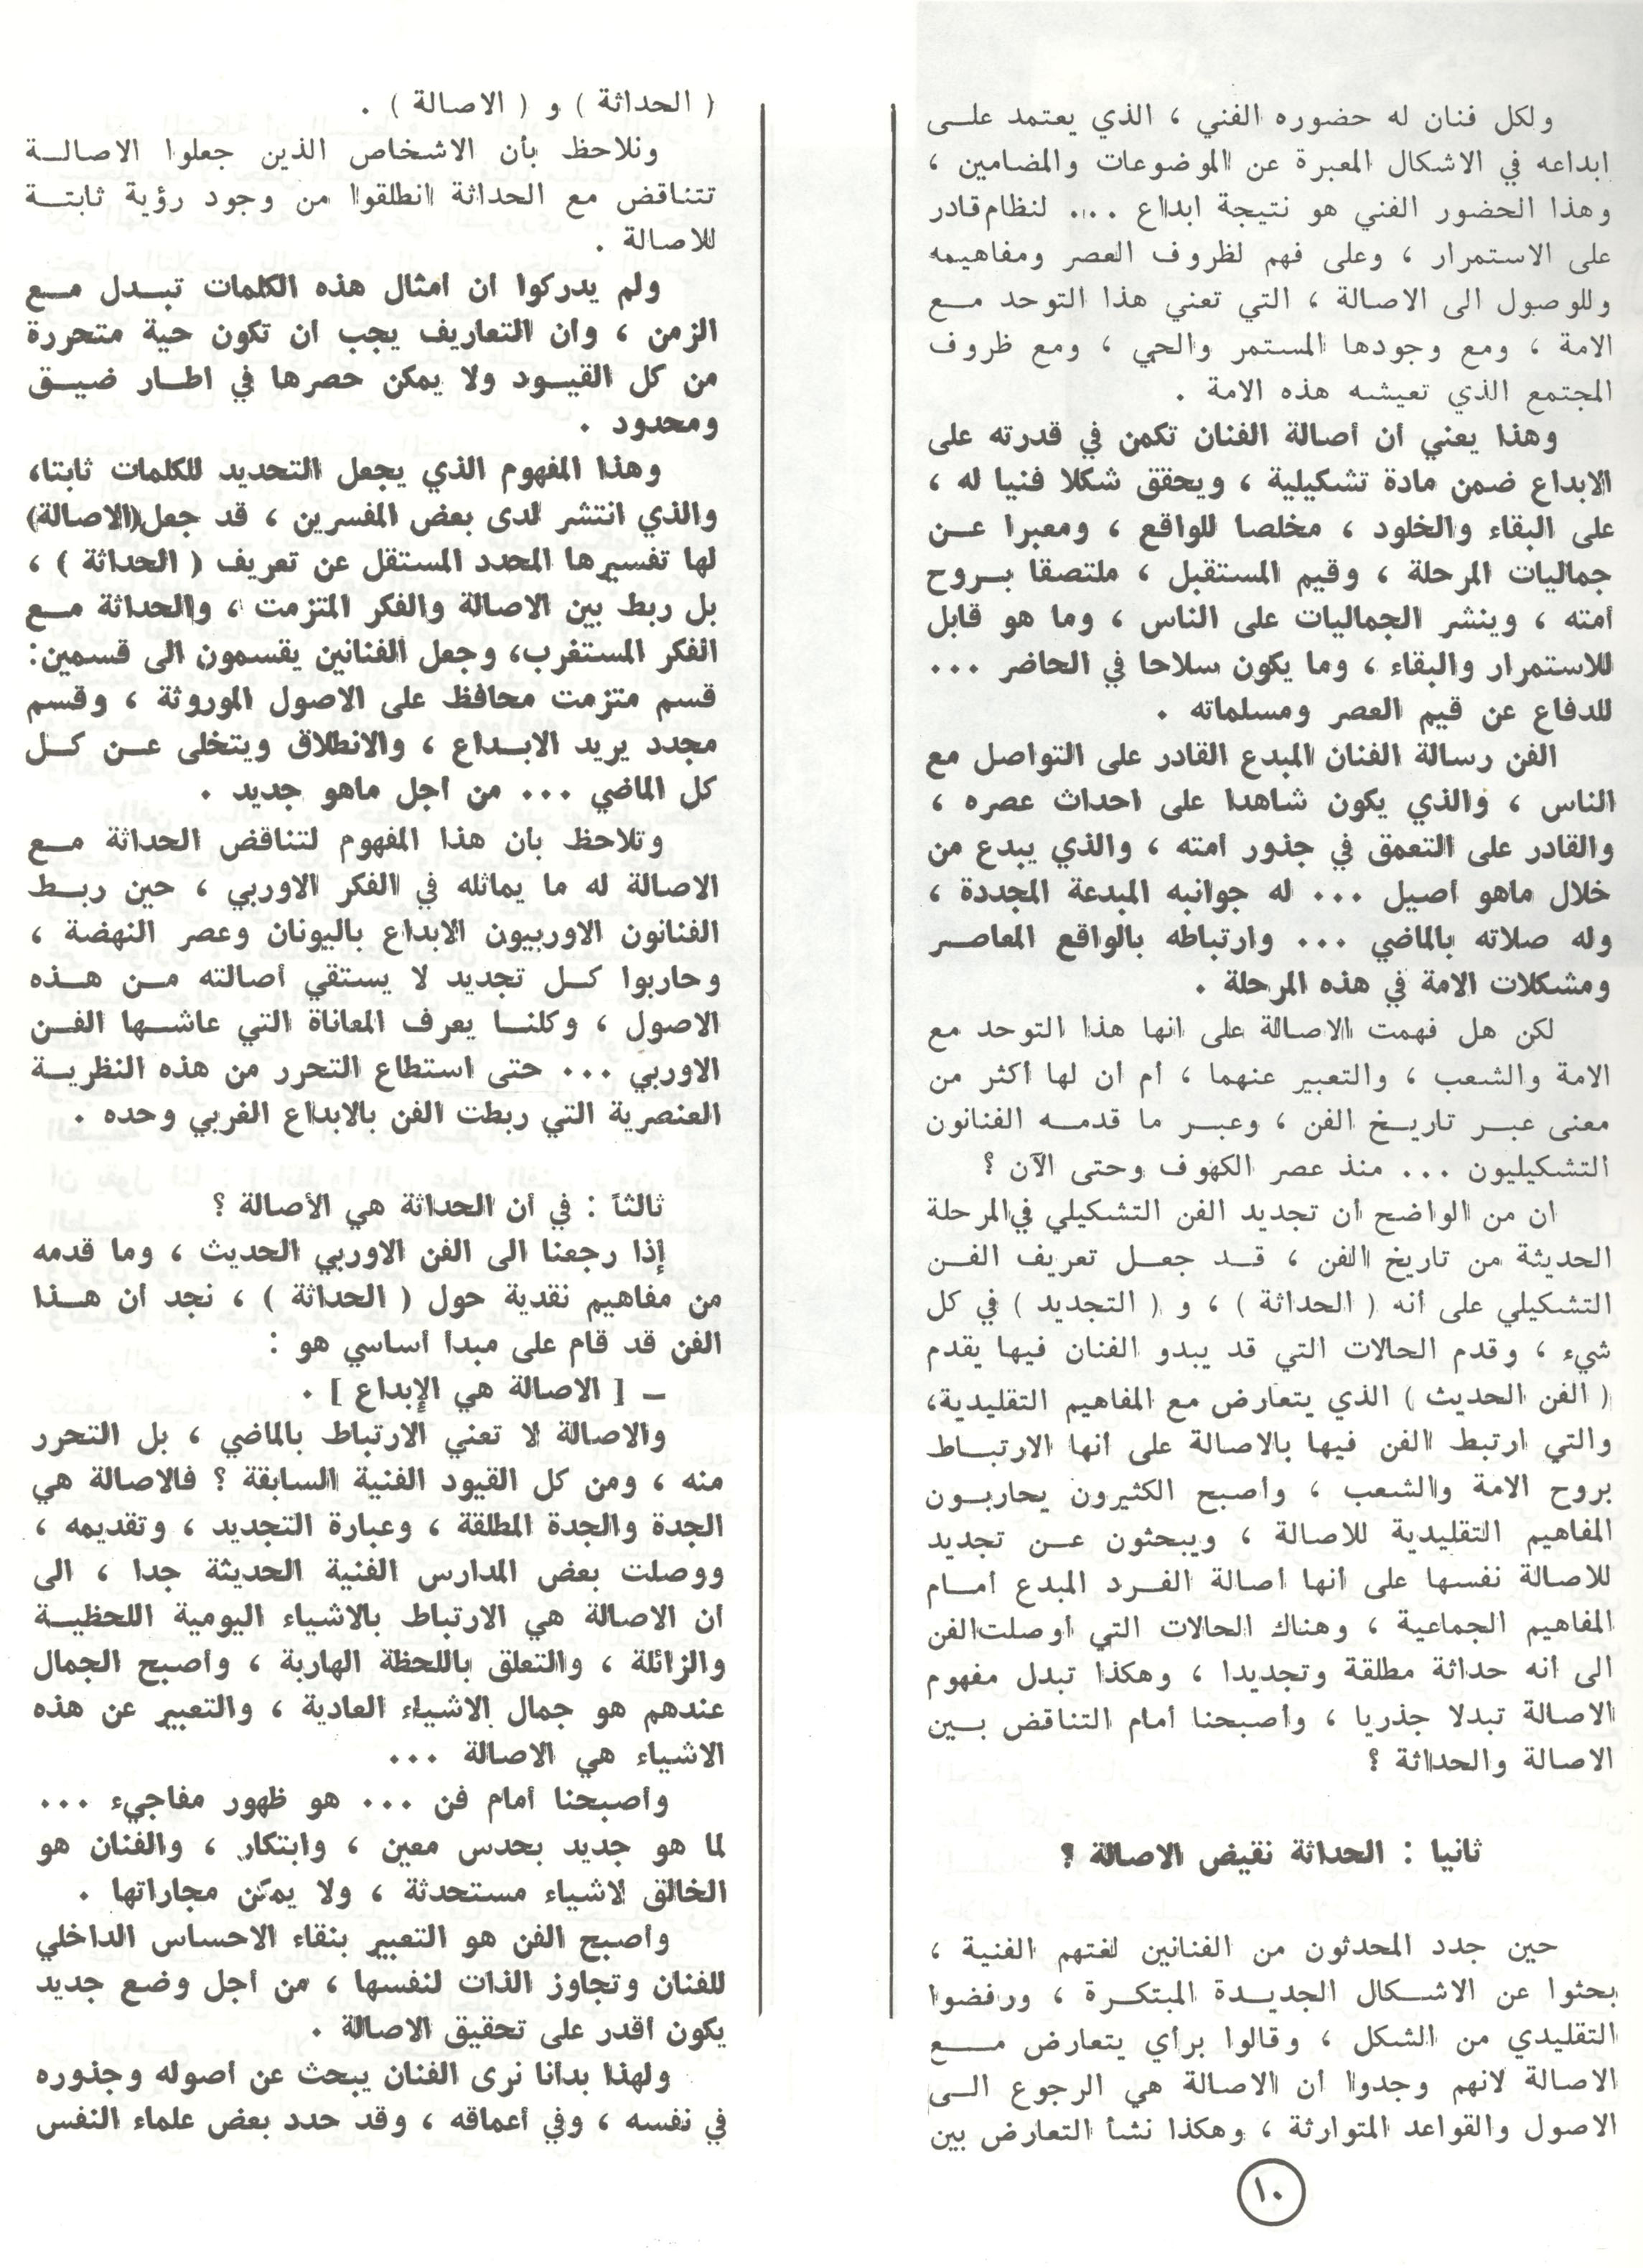 ولكل فنان له حضوره الفني ، الذي يعتمد علـى
ابداعه في الاشكال المعبرة عن الموضوعات والمضامين ،
وهذا الحضور الفني هو نتيجة ابداع ... لنظام قادر
على الاستمرار ، وعلى فهم لظروف العصر ومفاهيمه
وللوصول الى الاصالة ، التي تعني هذا التوحد مـع
الامة ، ومع وجودها المستمر والحي ، ومع ظروف
المجتمع الذي تعيشه هذه الامة .
وهذا يعني أن أصالة الفنان تكمن في قدرته على
الابداع ضمن مادة تشكيلية ، ويحقق شكلا فنيا له ،
على البقاء والخلود ، مخلصا للواقع ، ومعبرا عـن
جماليات المرحلة ، وقيم المستقبل ، ملتصقا بـروح
أمته ، وينشر الجماليات على الناس ، وما هو قابل
للاستمرار والبقاء ، وما يكون سلاحا في الحاضر ...
للدفاع عن قيم العصر ومسلماته .
الفن رسالة الفنان المبدع القادر على التواصل مع
الناس ، والذي يكون شاهدا على احداث عصره ،
والقادر على التعمق في جذور أمته ، والذي يبدع من
خلال ماهو أصيل ... له جوانبه المبدعة المجددة ،
وله صلاته بالماضي ... وارتباطه بالواقع المعاصـر
ومشكلات الامة في هذه المرحلة .
لكن هل فهمت الاصالة على انها هذا التوحد مع
الامة والشعب ، والتعبير عنهما ، أم أن لها أكثر من
معنى عبـر تاريـخ الفن ، وعبـر ما قدمـه الفنانون
التشكيليون ... منذ عصر الكهوف وحتى الآن ؟
ان من الواضح أن تجديد الفن التشكيلي في المرحلة
الحديثة من تاريخ الفن ، قـد جعـل تعريف الفـن
التشكيلي على أنه ( الحداثة ) ، و ( التجديد ) في كل
شيء ، وقدم الحالات التي قد يبدو الفنان فيها يقدم
( الفن الحديث ) الذي يتعارض مع المفاهيم التقليدية،
والتي ارتبط الفن فيها بالاصالة على أنها الارتبـاط
بروح الامة والشعب ، وأصبح الكثيرون يحاربـون
المفاهيم التقليدية للاصالة ، ويبحثون عـن تجديد
للاصالة نفسها على أنها أصالة الفـرد المبدع أمـام
المفاهيم الجماعية ، وهناك الحالات التي أوصلت الفن
الى أنه حداثة مطلقة وتجديدا ، وهكذا تبدل مفهوم
الاصالة تبدلا جذريا ، وأصبحنا أمام التناقض بـين
الاصالة والحداثة ؟
ثانيا : الحداثة نقيض الاصالة ؟
حين جدد المحدثون من الفنانين لغتهم الفنية ،
بحثوا عن الاشـكال الجديـدة المبتكـرة ، ورفضوا
التقليدي من الشكل ، وقالوا برأي يتعارض مـع
الاصالة لانهم وجدوا أن الاصالة هي الرجوع الـى
الاصول والقواعد المتوارثة ، وهكذا نشأ التعارض بين
( الحداثة ) و ( الاصالة ) .
ونلاحظ بأن الاشخاص الذين جعلوا الاصالـة
تتناقض مع الحداثة انطلقوا من وجود رؤية ثابتـة
للاصالة .
ولم يدركوا ان أمثال هذه الكلمات تبـدل مـع
الزمن ، وأن التعاريف يجب أن تكون حية متحررة
من كل القيـود ولا يمكن حصرها في اطـار ضيـق
ومحدود .
وهذا المفهوم الذي يجعل التحديد للكلمات ثابتا،
والذي انتشر لدى بعض المفسرين ، قد جعل(الاصالة)
لها تفسيرها المحدد المستقل عن تعريف ( الحداثة ) ،
بل ربط بين الاصالة والفكر المتزمت ، والحداثة مـع
الفكر المستغرب، وجعل الفنانين يقسمون الى قسمين:
قسم متزمت محافظ على الاصول الموروثة ، وقسم
مجدد يريد الابـداع ، والانطلاق ويتخلى عـن كـل
كل الماضي ... من أجل ماهو جديد .
وتلاحظ بأن هذا المفهوم لتناقض الحداثة مـع
الاصالة له ما يماثله في الفكر الاوربي ، حين ربـط
الفنانون الاوربيون الابداع باليونان وعصر النهضة ،
وحاربوا كـل تجديد لا يستقي أصالته مـن هـذه
الاصول ، وكلنـا يعرف المعاناة التي عاشـها الفـن
الاوربي ... حتى استطاع التحرر من هذه النظريـة
العنصرية التي ربطت الفن بالابداع الغربي وحده .
ثالثاً : في أن الحداثة هي الأصالة ؟
إذا رجعنا الى الفن الاوربي الحديث ، وما قدمه
من مفاهيم نقدية حول ( الحداثة ) ، نجد أن هـذا
الفن قد قام على مبدأ أساسي هو :
ـ [ الاصالة هي الإبداع ] .
والاصالة لا تعني الارتباط بالماضي ، بل التحرر
منه ، ومن كل القيود الفنية السابقة ؟ فالاصالة هي
الجدة والجدة المطلقة ، وعبارة التجديد ، وتقديمه ،
ووصلت بعض المدارس الفنية الحديثة جدا ، الى
أن الاصالة هي الارتباط بالاشياء اليومية اللحظيـة
والزائلة ، والتعلق باللحظة الهاربة ، وأصبح الجمال
عندهم هو جمال الاشياء العادية ، والتعبير عن هذه
الاشياء هي الاصالة ...
وأصبحنا أمام فن ... هو ظهور مفاجيء ...
لما هو جديد بحدس معين ، وابتكار ، والفنان هو
الخالق لاشياء مستحدثة ، ولا يمكن مجاراتها .
وأصبح الفن هو التعبير بنقاء الاحساس الداخلي
للفنان وتجاوز الذات لنفسها ، من أجل وضع جديد
يكون أقدر على تحقيق الاصالة .
ولهذا بدأنا نرى الفنان يبحث عن أصوله وجذوره
في نفسه ، وفي أعماقه ، وقد حدد بعض علماء النفس
١٠